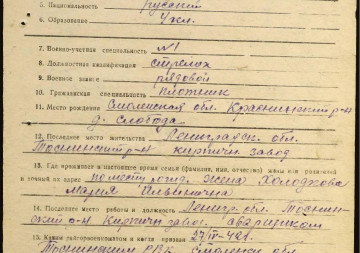 5. Национальность русский
6. Образование 4 кл.
7. Военно-учетная специальность №1
8. Должностная квалификация стрелок
9. Военное звание рядовой
10. Гражданская специальность плотник
11. Место рождения Смоленская обл. Краснинский р-н
д. Слобода
12. Последнее место жительства Ленинградск. обл.
Тоснинский р-н кирпичн завод
13. Где проживает в настоящее время семья (фамилия, имя, отчество) жены или родителей
и точный их адрес по мест. рожд. жена
Мария Ильинична
14. Последнее место работы и должность Ленигр. обл. Тоснин-
ский р-н Кирпичн завод. сварщиком
15. Каким райвоенкоматом и когда призван 27/IV-42г.
Тоснинским РВК Смоленск обл.